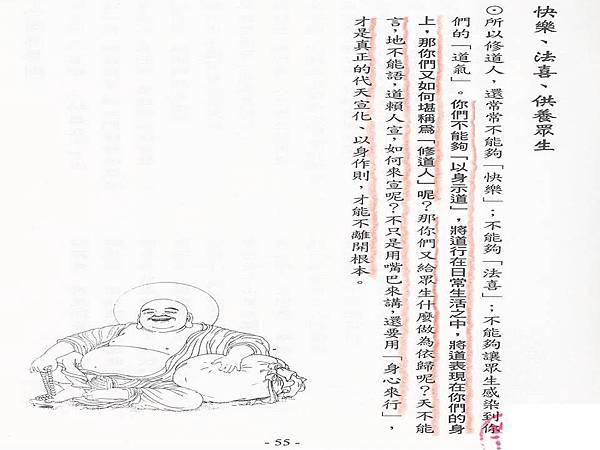 快樂、法喜、供養眾生
⊙所以修道人，還常常不能夠「快樂」；不能夠「法喜」；不能夠讓眾生感染到你
們的「道氣」。你們不能夠「以身示道」，將道行在日常生活之中，將道表現在你們的身
上，那你們又如何堪稱為「修道人」呢？那你們又給眾生什麼做為依歸呢？天不能
言，地不能語，道賴人宣，如何來宣呢？不只是用嘴巴來講，還要用「身心來行」，
才是真正的代天宣化、以身作則，才能不離開根本。
- 55 -